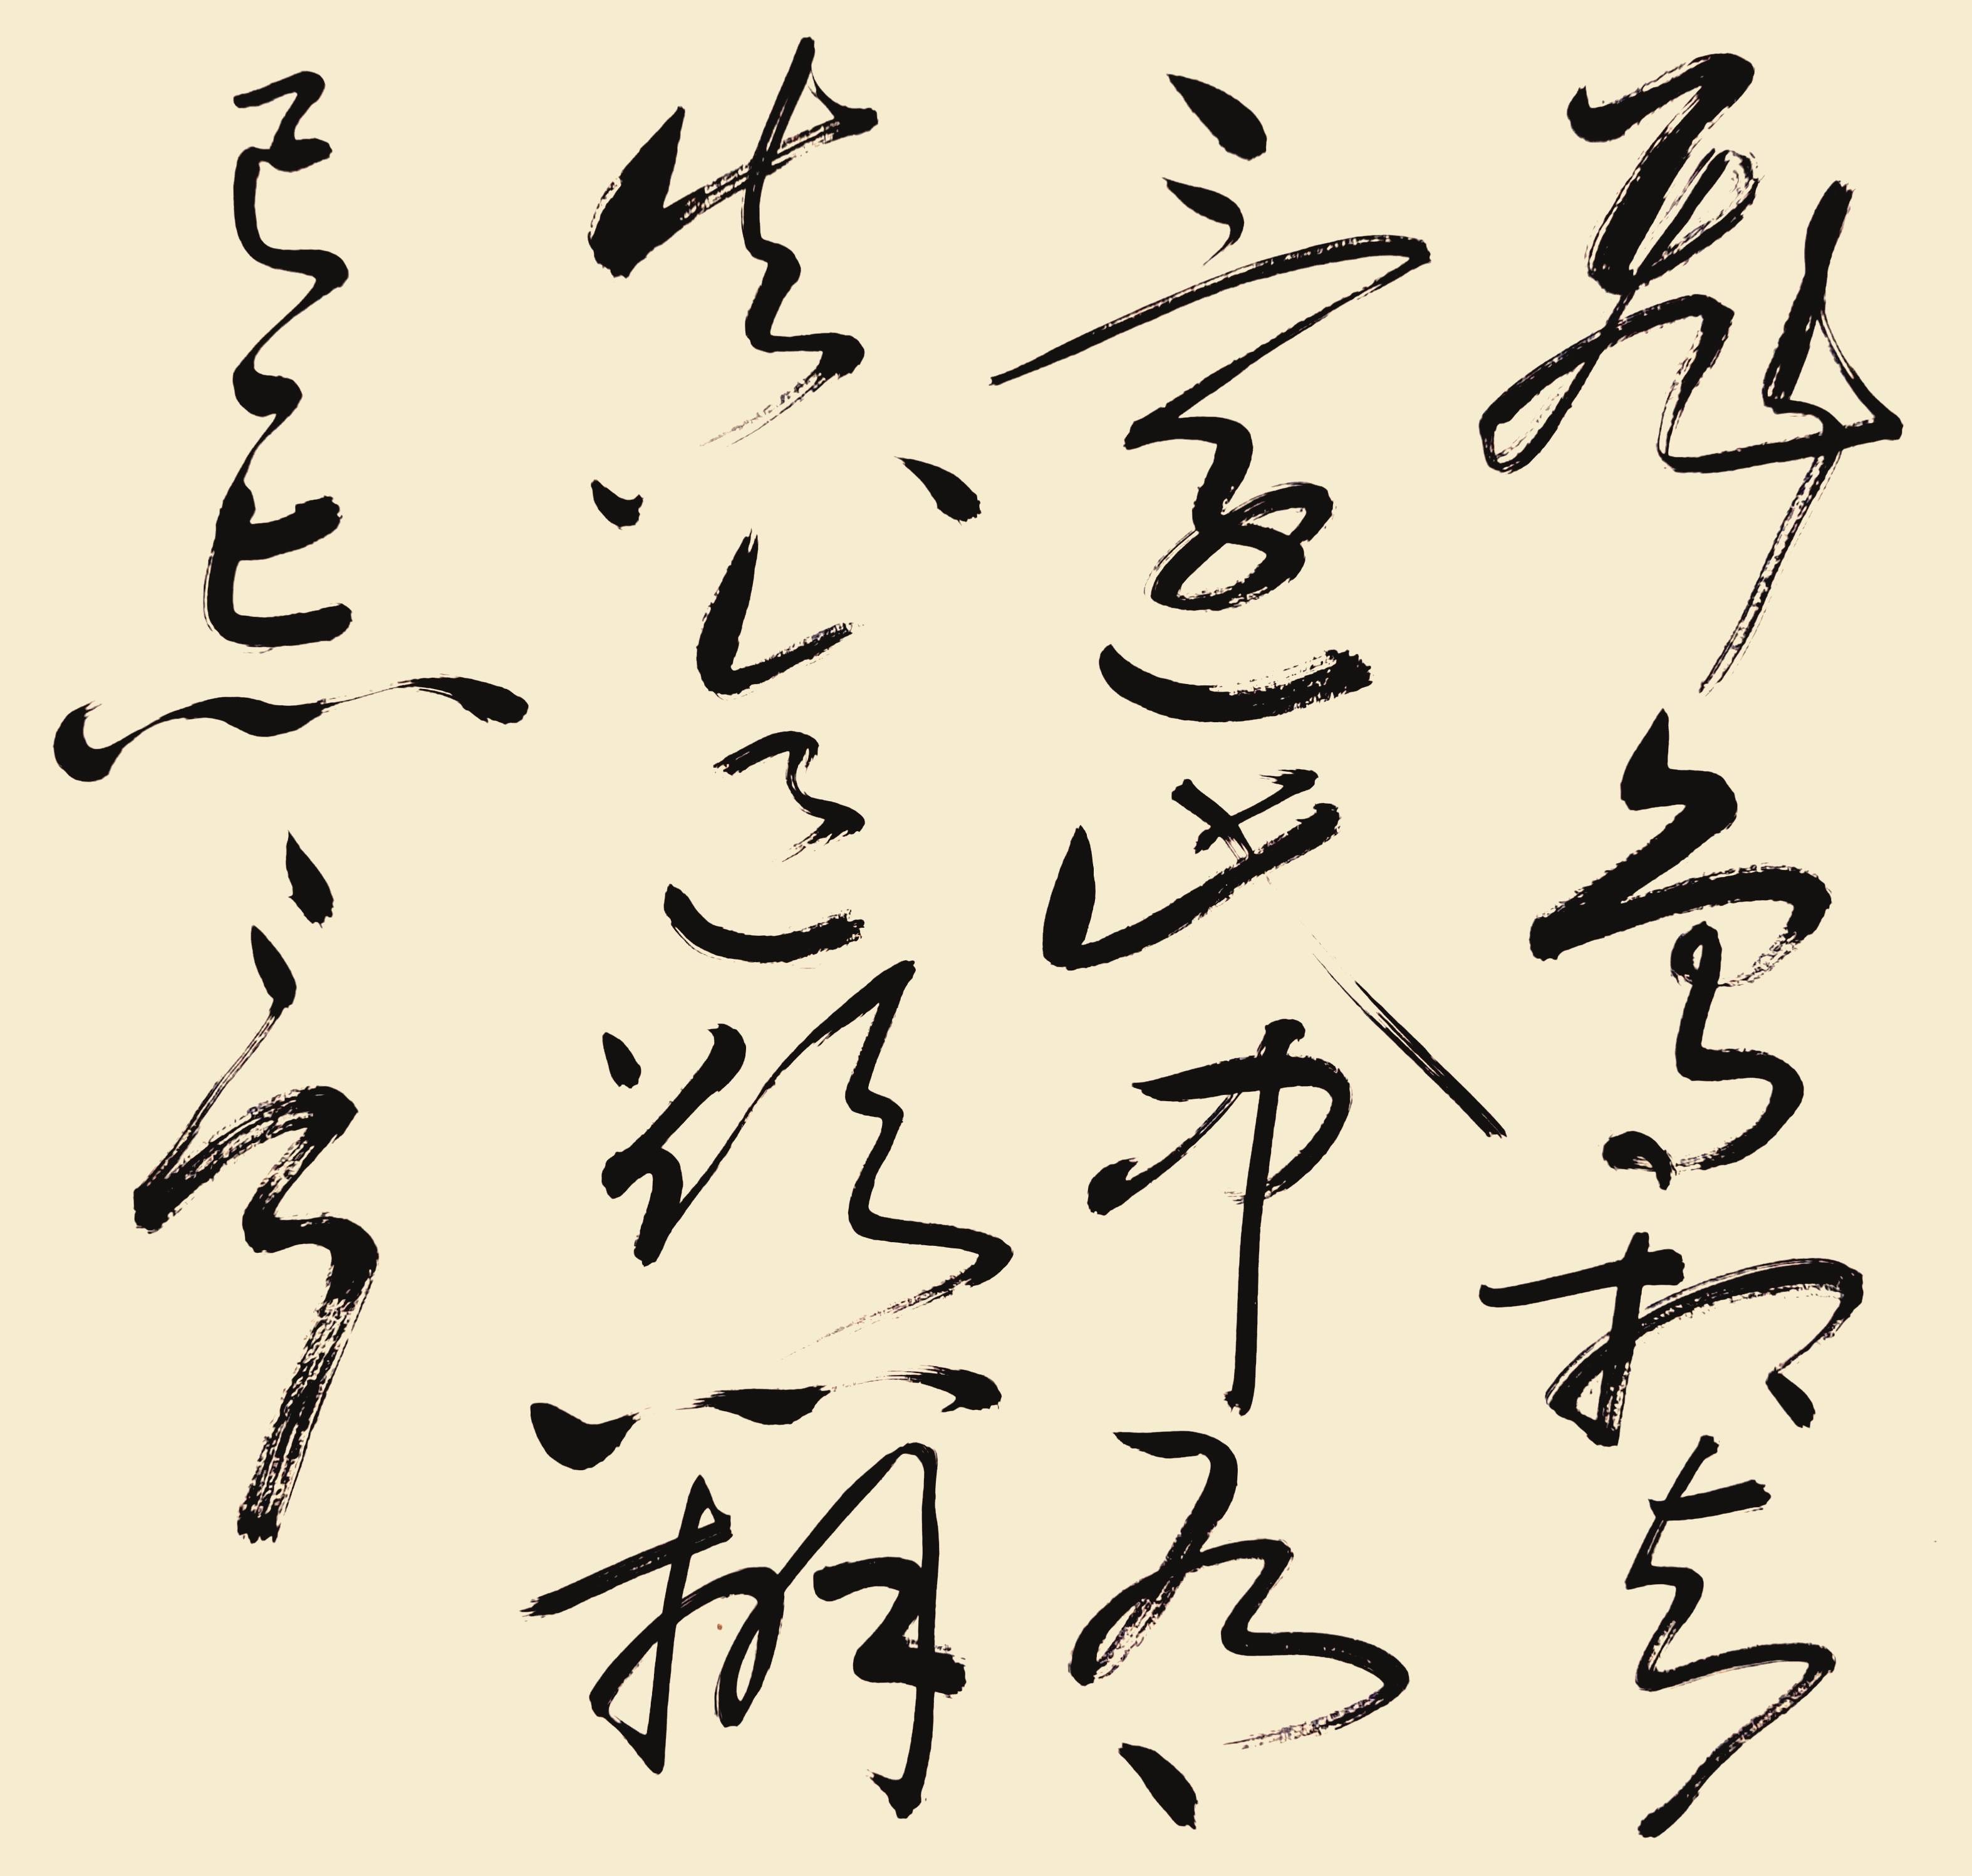 飛鳥相與
還此中有
真意欲辨
已忘言